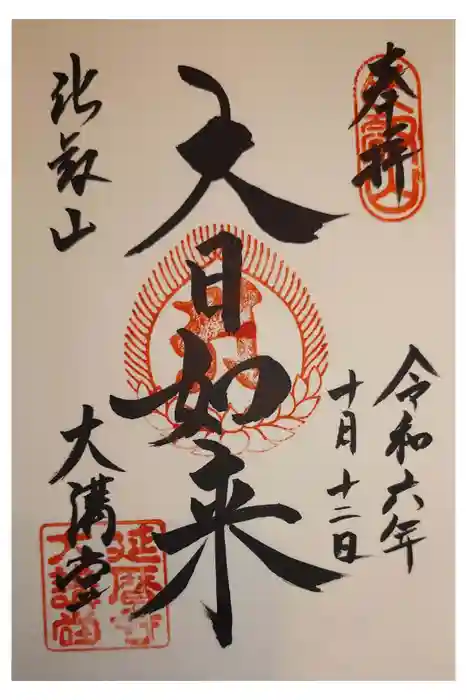 奉拝
比叡山
令和六年
十月十二日
大日如来
比叡山
大講堂
延暦寺
大講堂